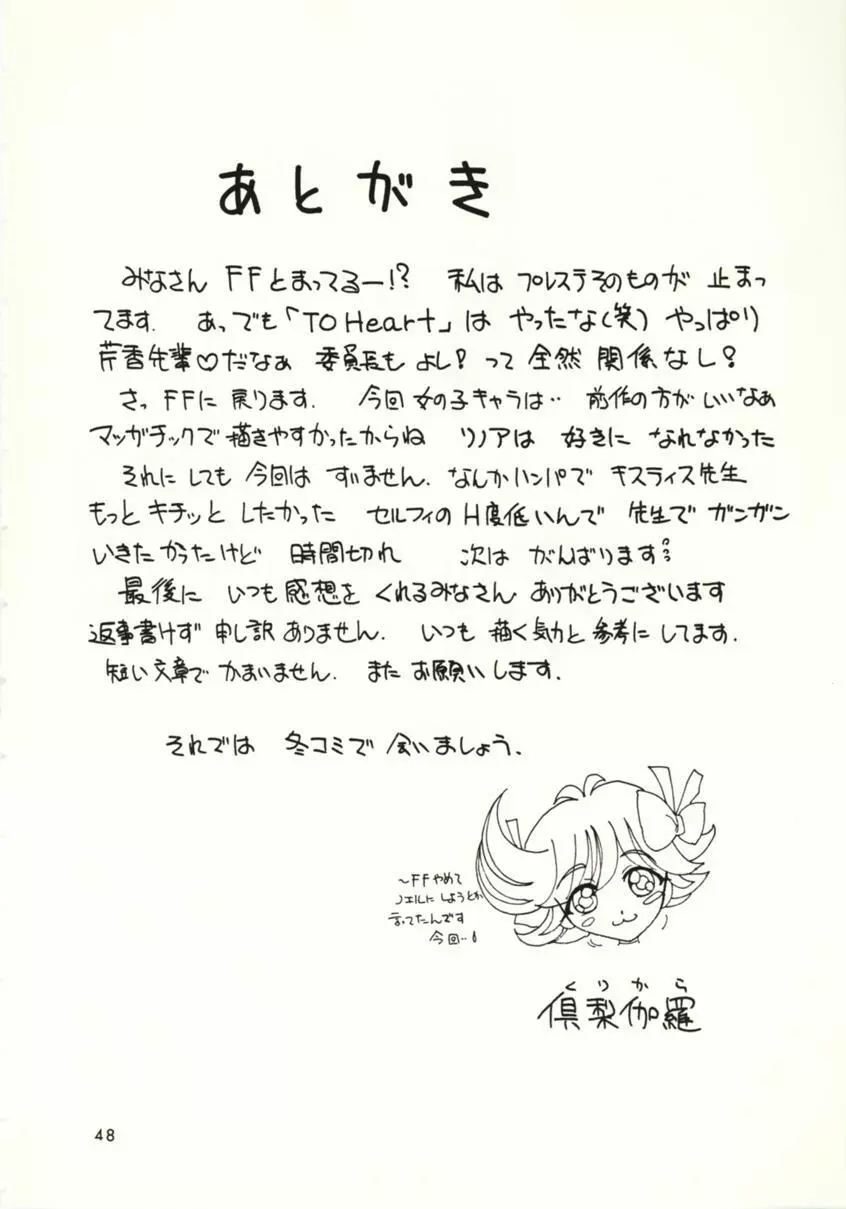 あとがき
みなさん FFとまってるー!? 私は プレステそのものが 止まっ
てます. あっでも「TO Heart」は やったな(笑) やっぱり
芹香先輩♡だなぁ 委員長も よし! って 全然 関係なし!
さっ FFに 戻ります. 今回 女の子キャラは‥ 前作の方が いいなぁ
マンガチックで描きやすかったからね リノアは 好きに なれなかった
それにしても 今回は すいません. なんかハンパで キスティス先生
もっと キチッと したかった セルフィのH度低いんで 先生で ガンガン
いきたかったけど 時間切れ 次は がんばります
最後に いつも 感想を くれるみなさん ありがとうございます
返事書けず 申し訳ありません. いつも 描く気力と 参考に してます.
短い文章で かまいません. また お願いします.
それでは 冬コミで 会いましょう.
~FFやめて
ノエルに しようとか
言ってたんです
今回‥
くりから
倶梨伽羅
48